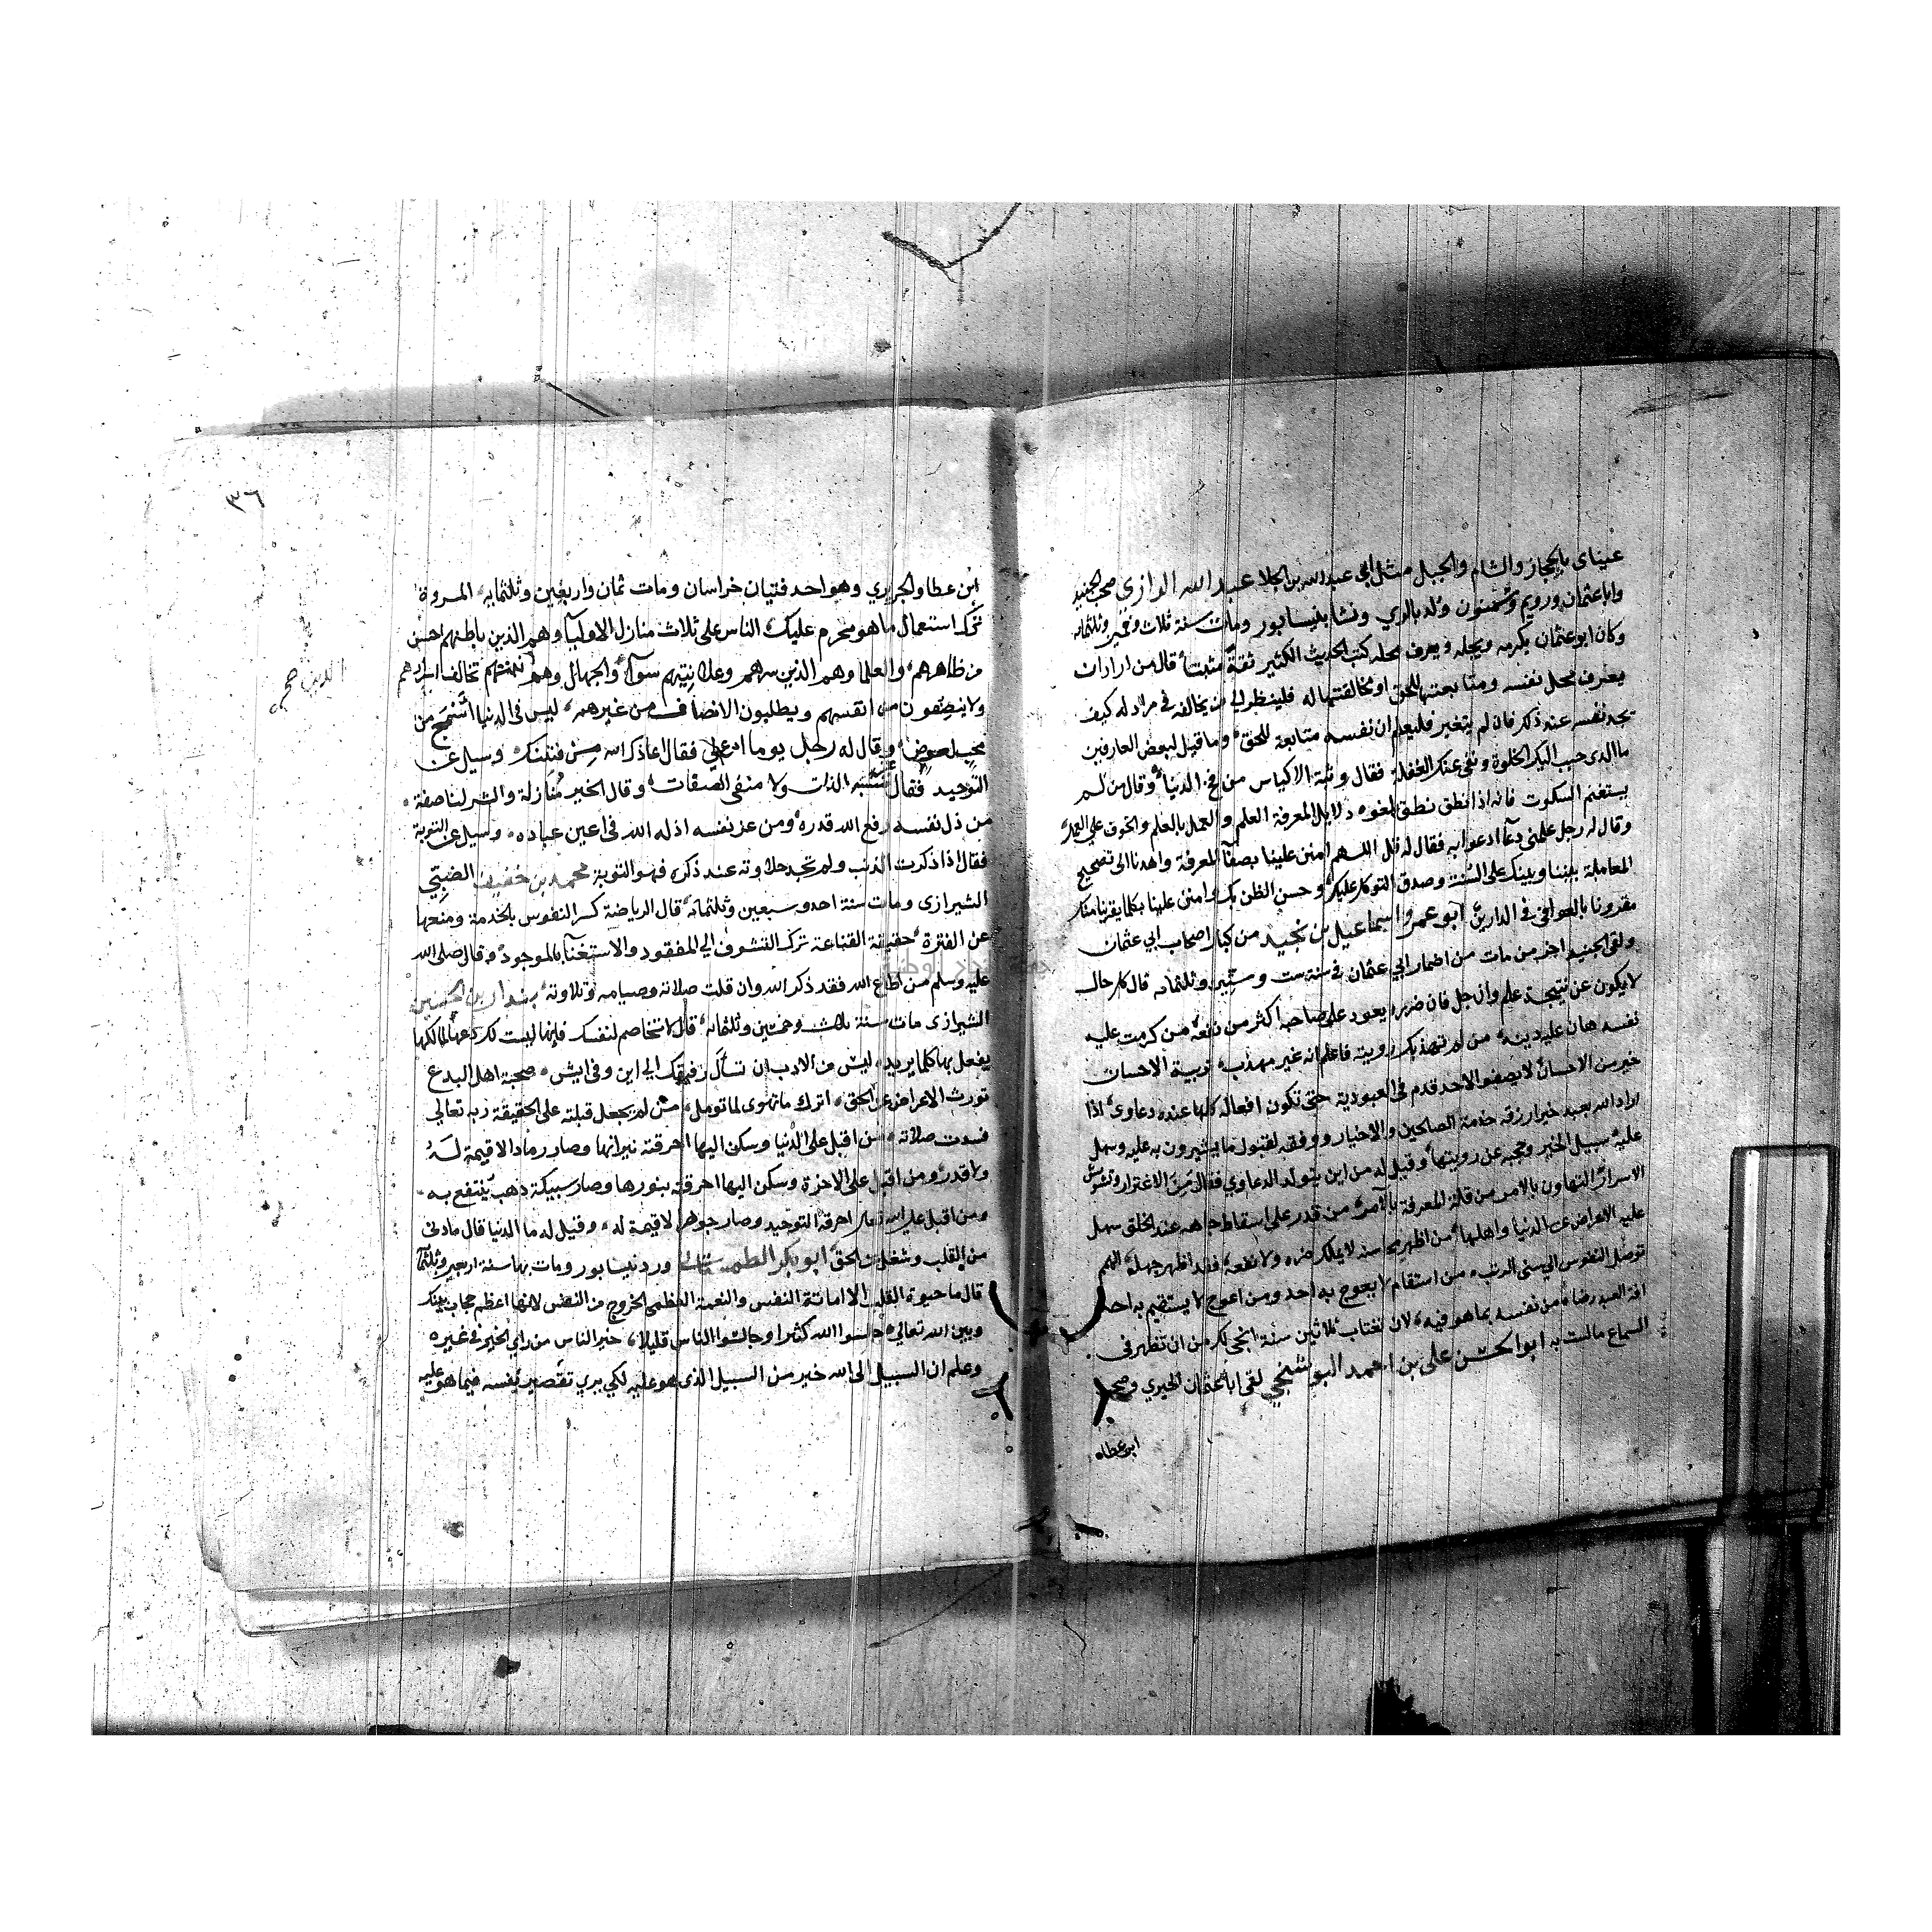 عيناي بالحجاز والشام والجبل مثل ابي عبدالله بن الجلا عبد الله الرازي صحب الجنيد
وابا عثمان ورويم وسمنون ولد بالري ونشا بنيسابور ومات سنة ثلاث وخمسين وثلثمائه
وكان ابو عثمان يكرمه ويجله ويعرف محله كتب الحديث الكثير ثقة قال من اراد ان
يعرف محل نفسه ومتابعتها للحق او مخالفتها له فلينظر الي من يخالفه في مراد له كيف
تجد نفسه عند ذلك فان لم يتغير فليعلم ان نفسه متابعة للحق وما قيل لبعض العارفين
ما الذي حبب اليك الخلوة ونفي عنك الغفلة فقال وثبة الاكياس من فخ الدنيا وقال من لم
يستغنم السكوت فانه اذا نطق نطق بلغوه دلايل المعرفة العلم والعمل بالعلم والخوف علي العمل
وقال له رجل علمني دعآ ادعوا به فقال له قل اللهم امنن علينا بصفآ المعرفة واهدنا الي تصحيح
المعاملة بيننا وبينك علي السنة وصدق التوكل عليك وحسن الظن بك وامنن علينا بكلما يقربنا منك
مقرونا بالعوافي في الدارين ابو عمرو اسماعيل بن نجيد من كبار اصحاب ابي عثمان
ولقي الجنيد اخر من مات من اصحاب ابي عثمان في سنة ست وستين وثلثمايه قال كل حال
لا يكون عن نتيجة علم وان جل فان ضرره يعود علي صاحبه اكثر من نفعه من كرمت عليه
نفسه هان عليه دينه من لم تهذبك رويته فاعلم انه غير مهذب تربية الاحسان
خير من الاحسان لا يصفو لاحد قدم في العبودية حتي تكون افعاله كلها عنده دعاوي اذا
اراد الله بعبد خيرا رزقه خدمة الصالحين والاخيار ووفقه لقبول ما يشيرون به عليه وسهل
عليه سبيل الخير وحجبه عن رويتها وقيل له من اين يتولد الدعاوي فقال من الاغترار وتشوش
الاسرار التهاون بالامر من قلة المعرفة بالآمر من قدر علي اسقاط جاهه عند الخلق سهل
عليه الاعراض عن الدنيا واهلها من اظهر محاسنه لمن لا يملك ضره ولا نفعه فقد اظهر جهله الهمم
توصل النفوس الي سني الرتب من استقام لا يعوج به احد ومن اعوج لا يستقيم به احد
افة العبد رضاه من نفسه بما هو فيه لان تغتاب ثلاثين سنة انجي لك من ان تظهر في
السماع ما لست به ابو الحسن علي بن احمد البوشنجي لقي ابا عثمان الحيري وصحب
ابن عطاه
٣٦
ابن عطا والجريري وهو احد فتيان خراسان ومات ثمان واربعين وثلثمايه المروة
ترك استعمال ما هو محرم عليك الناس علي ثلاث منازل الاوليآ وهم الذين باطنهم احسن
من ظاهرهم والعلما وهم الذين سرهم وعلانيتهم سوآ والجهال وهم الذين علانيتهم تخالف اسرارهم
ولا ينصفون من انفسهم ويطلبون الانصاف من غيرهم ليس في الدنيا اسمج من
محب لعوض وقال له رجل يوما ادع لي فقال اعاذك الله من فتنتك وسيل عن
التوحيد فقال مشبه الذات ولا منفي الصفات وقال الخير منازلة والشر لنا صفة
من ذل نفسه رفع الله قدره ومن عز نفسه اذله الله في اعين عباده وسيل عن التوبة
فقال اذا ذكرت الذنب ولم تجد حلاوته عند ذكره فهو التوبة محمد بن خفيف الضبي
الشيرازي ومات سنة احد وسبعين وثلثمائه قال الرياضة كسر النفوس بالخدمة ومنعها
عن الفترة حقيقة القناعة ترك التشوف الي المفقود والاستغنآ بالموجود وقال صلي الله
عليه وسلم من اطاع الله فقد ذكر الله وان قلت صلاته وصيامه وتلاوته بندار بن الحسين
الشيرازي مات سنة ثلاث وخمسين وثلثمايه قال لا تخاصم لنفسك فانها ليست لك دعها لمالكها
يفعل بها كلما يريد ليس من الادب ان تسأل رفيقك الي اين وفي ايش صحبة اهل البدع
تورث الاعراض عن الحق اترك ما تهوي لما تومل من لم يجعل قبلته علي الحقيقة ربه تعالي
فسدت صلاته من اقبل علي الدنيا وسكن اليها احرقته نيرانها وصار رمادا لا قيمة له
ولا قدر ومن اقبل علي الاخرة وسكن اليها احرقته بنورها وصار سبيكة ذهب ينتفع به
ومن اقبل علي الله تعالي احرقه التوحيد وصار جوهرا لا قيمة له وقيل له ما الدنيا قال ما دني
من القلب وشغل عن الحق ابو بكر الطمستاني ورد نيسابور ومات بها سنة اربعين وثلثمآ
قال ما حيوة القلب الا اماتة النفس والنعمة العظمي الخروج من النفس لانها اعظم حجاب بينك
وبين الله تعالي جالسوا الله كثيرا وجالسوا الناس قليلا خير الناس من راي الخير في غيره
وعلم ان السبيل الي الله خير من السبيل الذي هو عليه لكي يري تقصير نفسه فيما هو عليه